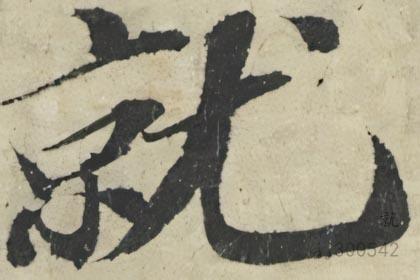 就
就
1.300542